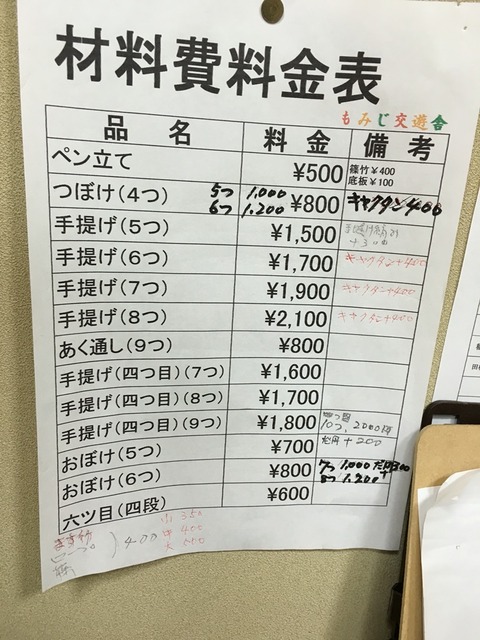 材料費料金表
もみじ交遊舎
品名 料金 備考
ペン立て ¥500 篠竹¥400
底板¥100
つぼけ(4つ) 5つ 1,000 6つ 1,200 ¥800 キャクタン400
手提げ(5つ) ¥1,500 +300
手提げ(6つ) ¥1,700 キャクタン+400
手提げ(7つ) ¥1,900 キャクタン+400
手提げ(8つ) ¥2,100 キャクタン+400
あく通し(9つ) ¥800
手提げ(四つ目)(7つ) ¥1,600
手提げ(四つ目)(8つ) ¥1,700
手提げ(四つ目)(9つ) ¥1,800 四つ目
10つ、2000
おぼけ(5つ) ¥700 +200
おぼけ(6つ) ¥800 7つ 1,000
8つ 1,200
六ツ目(四段) ¥600
小 350
中 400
大
400